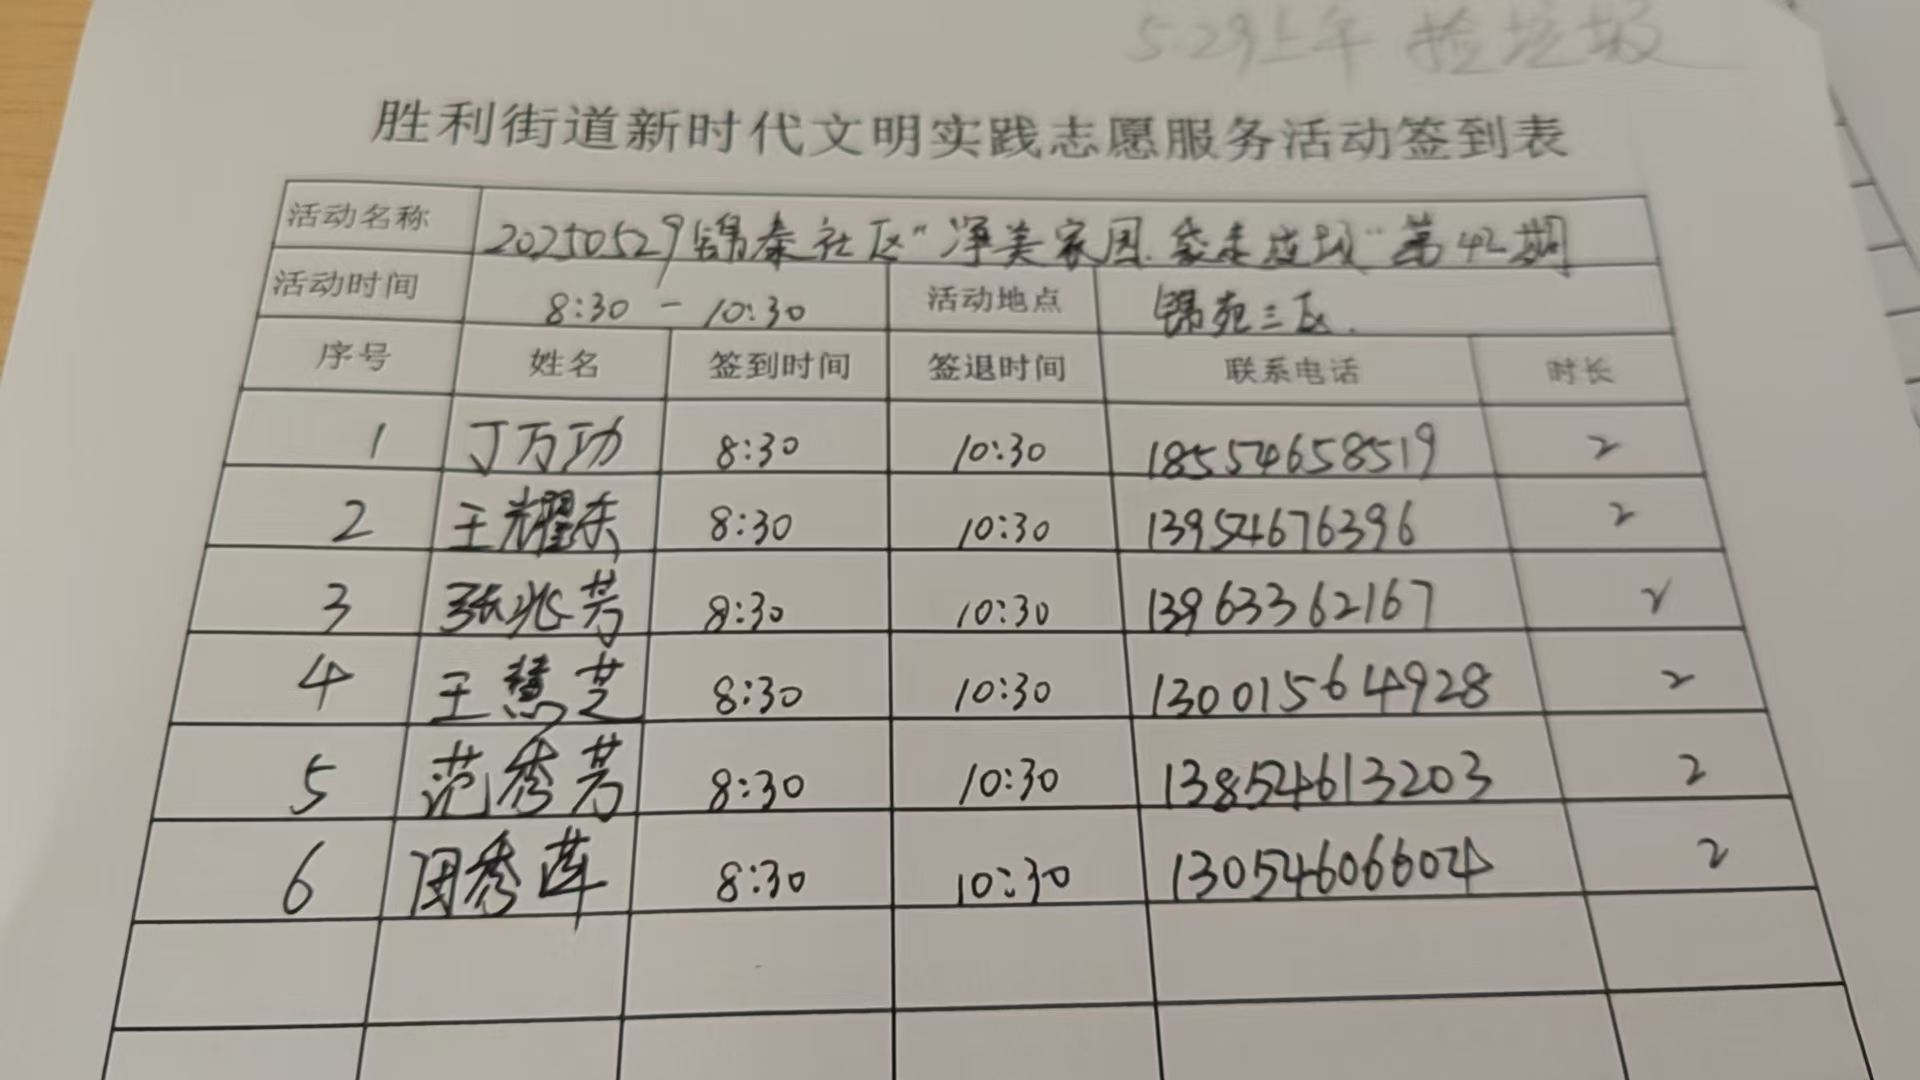 5.29上午 捡垃圾
胜利街道新时代文明实践志愿服务活动签到表
活动名称 20250529锦泰社区"净美家园.袋走垃圾"第42期
活动时间 8:30 - 10:30 活动地点 锦苑三区.
序号 姓名 签到时间 签退时间 联系电话 时长
1 丁万功 8:30 10:30 18554658519 2
2 王耀东 8:30 10:30 13954676396 2
3 张兆芳 8:30 10:30 13963362167 2
4 王慧芝 8:30 10:30 13001564928 2
5 范秀芳 8:30 10:30 13854613203 2
6 周秀莲 8:30 10:30 13054606604 2